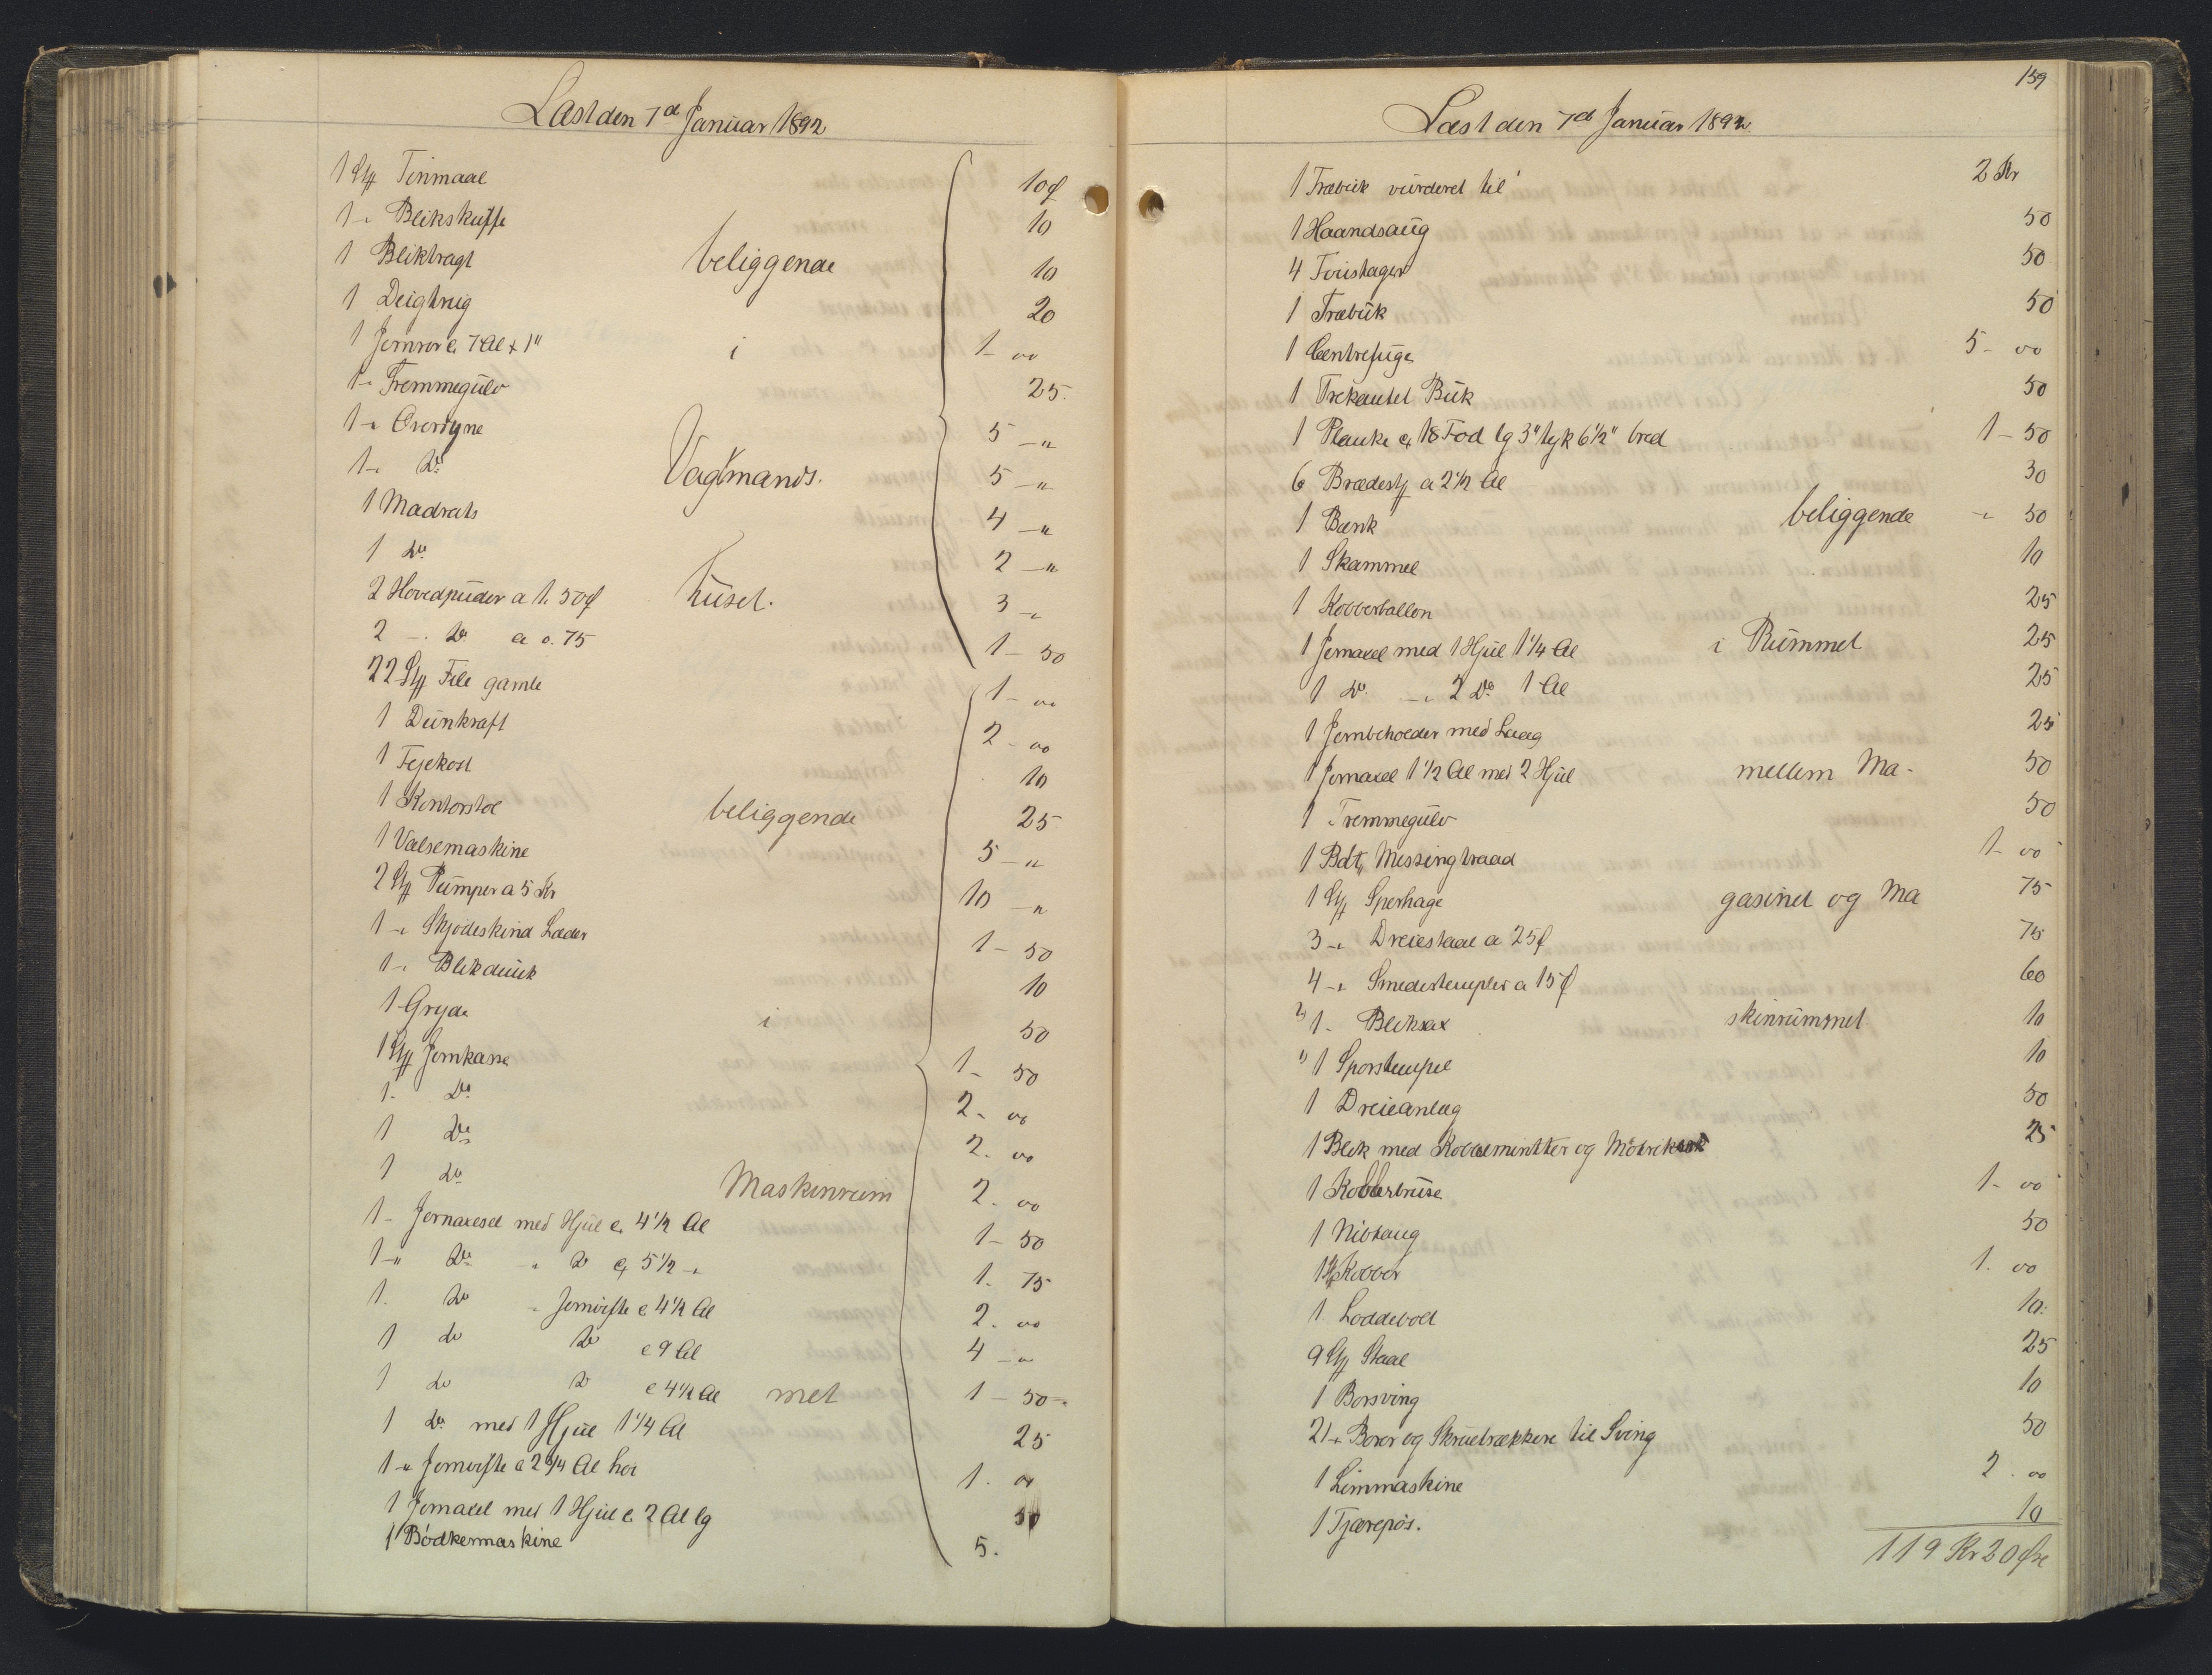 Læst den 7d Januar 1892
1 Stk Tinmaal 10 ø
1 " Blikskuffe 10
1 Bliktragt beliggende 10
1 Deigtrug 20
1 Jernrør à 7 Al x 1" i 1 - 00
1 " Tremmegulv 25
1 " Overdyne 5 - "
1 " Do Vagtmands. 5 - "
1 Madrats 4 - "
1 Do 2 - "
2 Hovedpuder a 1. 50 ø huset. 3 - "
2 - " Do a 0. 75 1 - 50
22 Stk File gamle 1 - 00
1 Dunkraft 2 - 00
1 Fejekost 10
1 Kontorstol beliggende 25
1 Valsemaskine 5 - "
2 Stk Pumper a 5 Kr 10 - "
1 - " Skjødeskind Læder 1 - 50
1 - " Blikdunk 10
1 Gryde i 50
1 Stk Jernkasse 1 - 50
1 - Do 2 - 00
1 Do 2 - 00
1 Do Maskinrum 2 - 00
1 - Jernaxesel med Hjul à 4 1/2 Al 1 - 50
1 - " Do " Do à 5 1/2 - " 1 - 75
1 - Do - Jernvifte à 4 1/2 Al 2 - 00
1 do Do à 9 Al 4 - "
1 do Do à 4 1/2 Al met 1 - 50 -
1 do med 1 Hjul 1 1/4 Al 25
1 - " Jernvifte a 2 3/4 Al høi 1 - 00
1 Jernaxel med 1 Hjul à 2 Al lg 50
1 Bødkermaskine 5.
159
Læst den 7d Januar 1892
1 Træbuk vurderet til 2 Kr
1 Haandsaug 50
4 50
1 Træbuk 50
1 Centrefuge 5 - 00
1 Trekantet Buk 50
1 Planke à 18 Fod lg 3" tyk 6 1/2" bred 1 - 50
6 Brædestk a 2 1/2 Al 30
1 Bænk beliggende - " 50
1 Skammel 10
1 Kobberballon 25
1 Jernaxel med 1 Hjul 1 1/4 Al i Rummet 25
1 Do - " 2 Do 1 Al 25
1 Jernbeholder med Laag 25
1 Jernaxel 1 1/2 Al med 2 Hjul mellem Ma- 50
1 Tremmegulv 50
1 Bdt Messingtraad 1 - 00
1 Stk Sperhage gasinet og Ma 75
3 - " Dreiestaal a 25 ø 75
4 - " Smedestempler a 15 ø 60
2) 1 - Bliksax skinrummet 10
1) 1 Sporstempel 10
1 Dreieanlæg 50
1 Blik med og 25
1 Kobberbruse 1 - 00
1 Nibtang 50
1 Stk Kobber 1. 00
1 Loddebolt 10.
9 Stk Staal 25
1 Borsving 10
21 - " Borer og Skruetrækkere til Sving 50
1 Limmaskine 2 . 00
1 Tjærepøs. 10
119 Kr 20 Øre